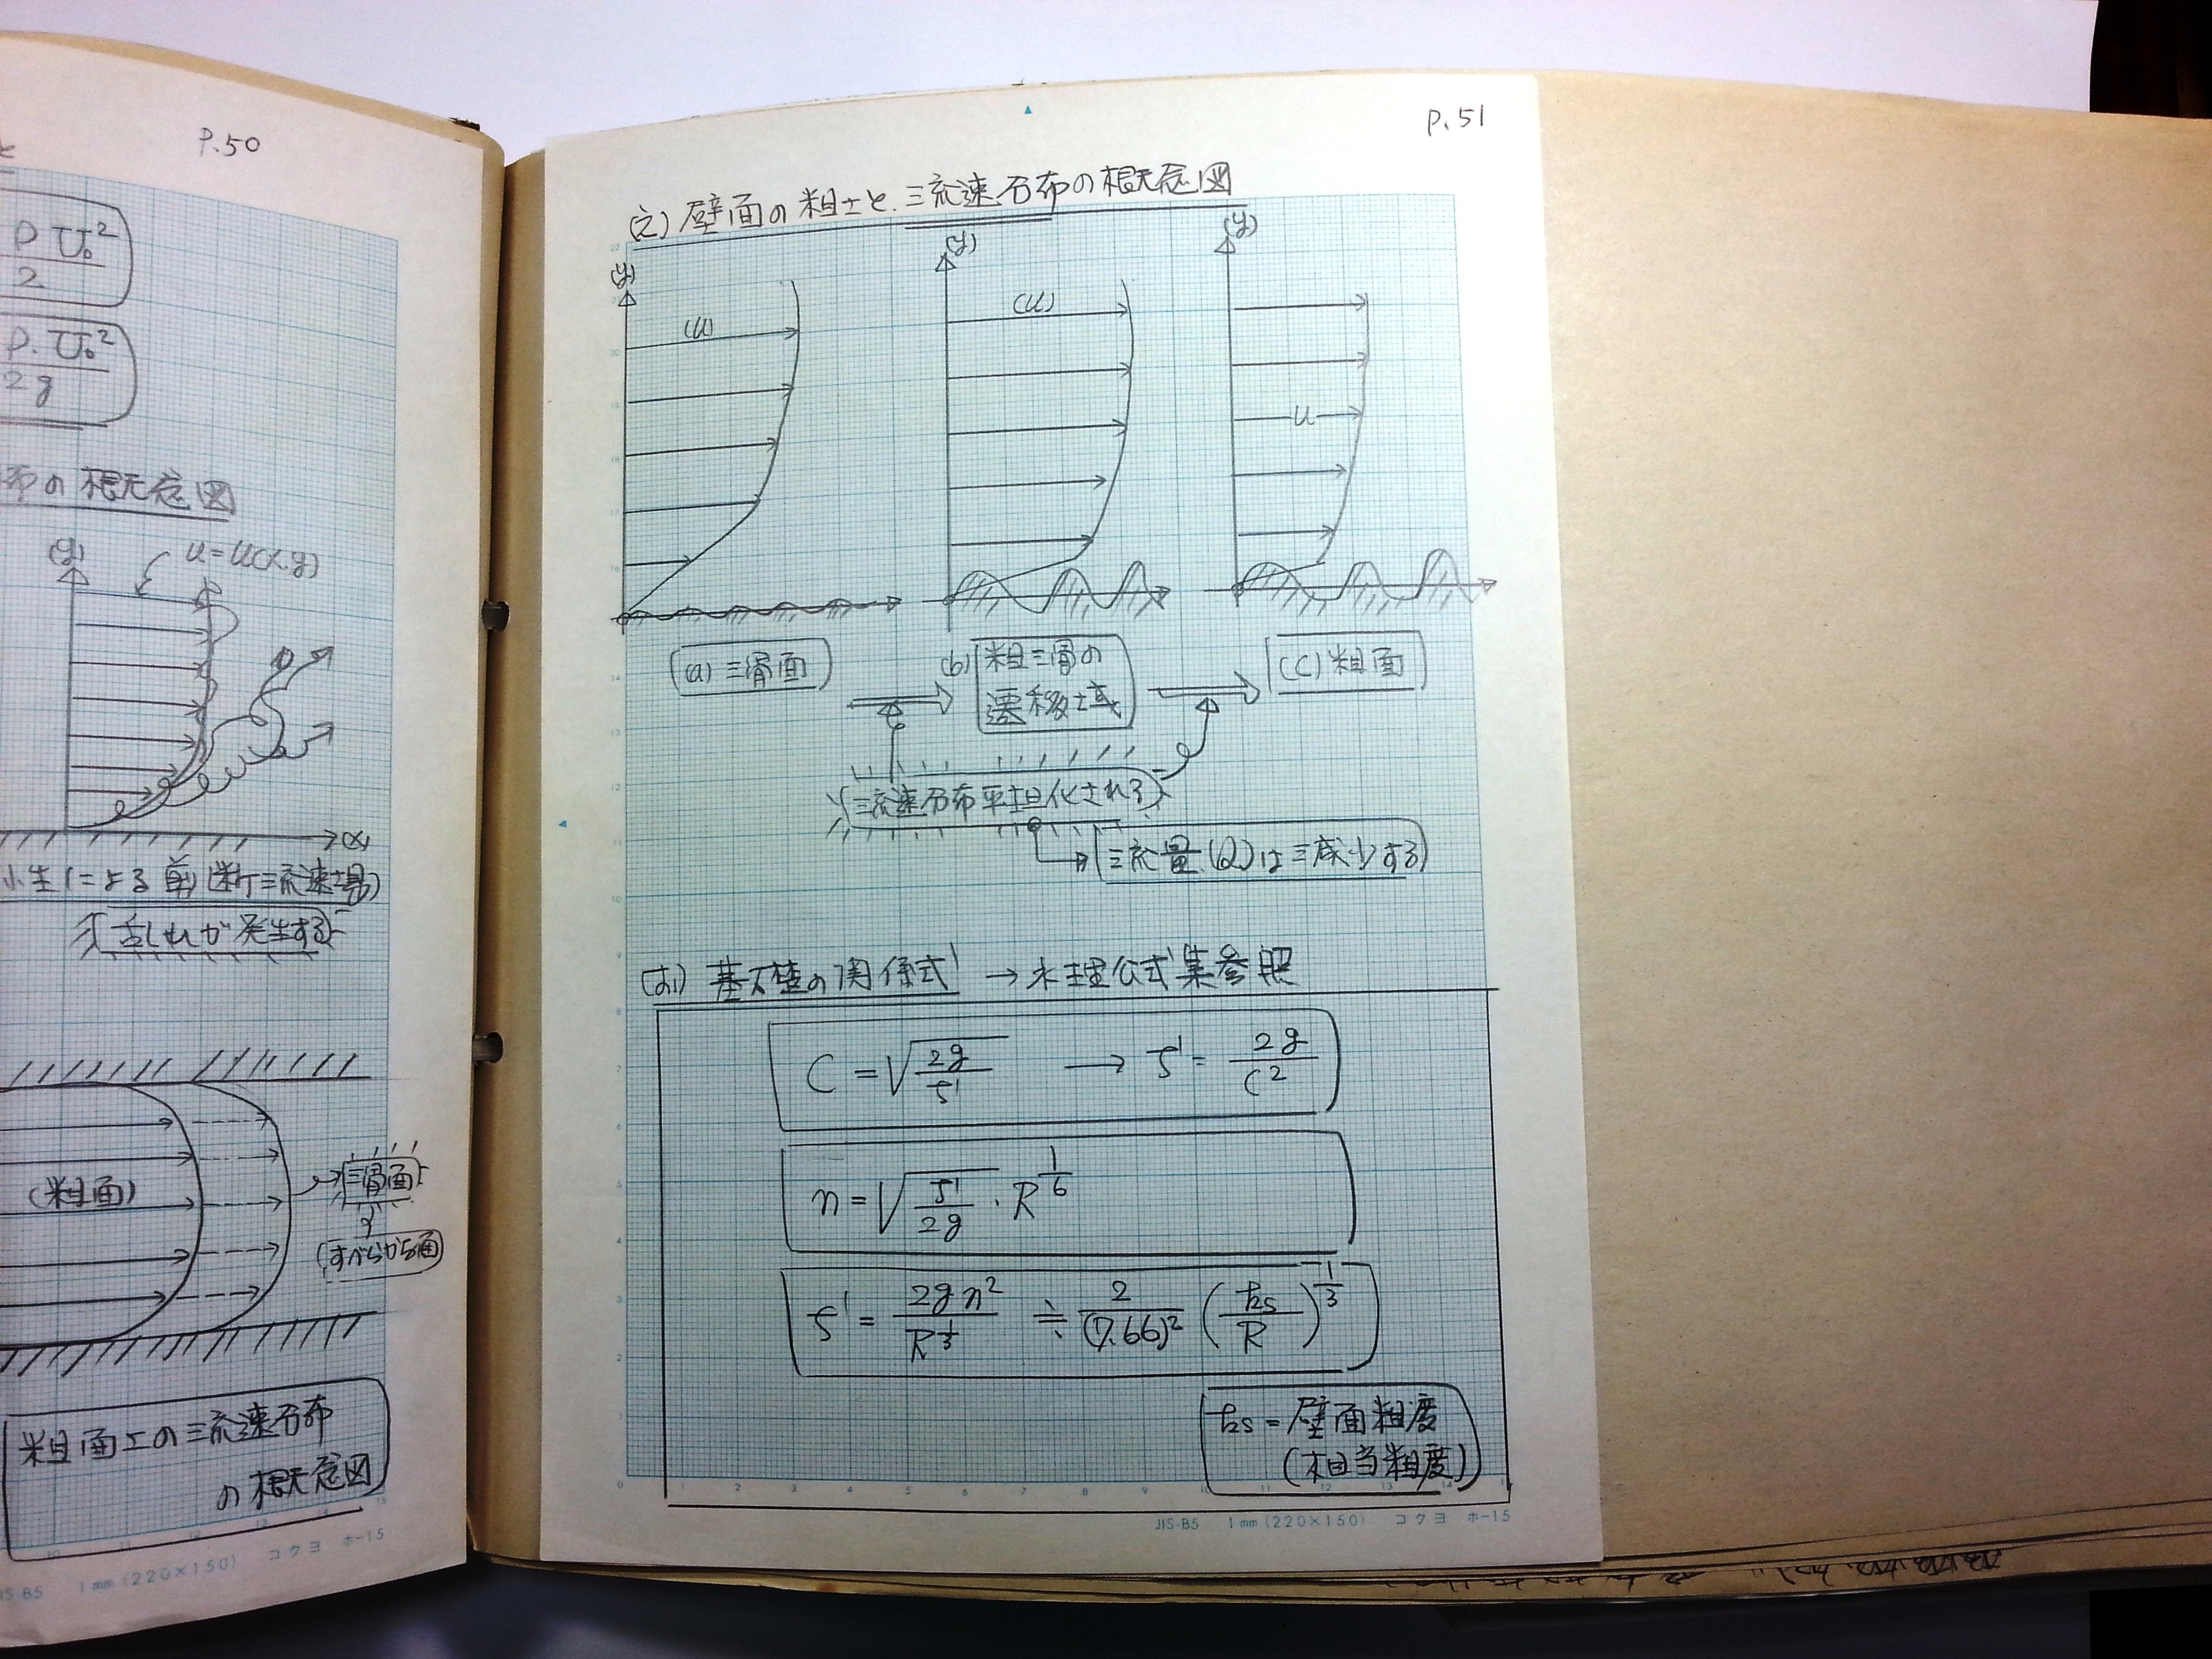 P.50
ρU₀²
2
ρ.U₀²
2g
布の概念図
(y)
u=u(x.y)
(x)
小生による剪断流速場)
乱れが発生する
(粗面)
滑面
(すべらかな面)
粗面上の流速分布
の概念図
JIS-B5 1mm(220×150) コクヨ ホ-15
P.51
(え) 壁面の粗さと流速分布の概念図
(y) (y) (y)
(u) (u) u
(a) 滑面
(b) 粗滑の
遷移域
(c) 粗面
流速分布平坦化される
流量(Q)は減少する
(お) 基礎の関係式 → 水理公式集参照
C = √(2g/f') → f' = 2g/C²
n = √(f'/2g) · R^(1/6)
f' = 2gn²/R^(1/3) ≒ 2/(7.66)² (ks/R)^(1/3)
ks = 壁面粗度
(相当粗度)
JIS-B5 1mm(220×150) コクヨ ホ-15